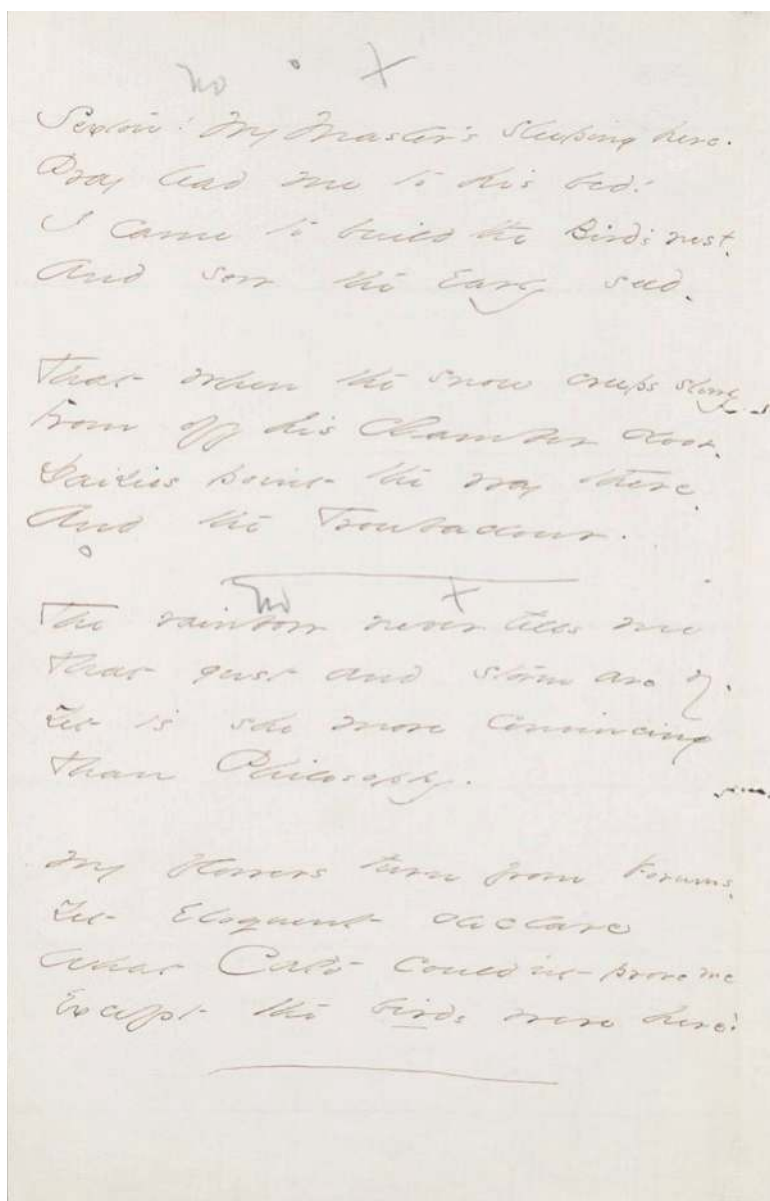 no x
Sexton! My Master's sleeping here.
Pray lead me to his bed!
I came to build the Bird's nest,
And sow the Early seed.
That when the snow creeps slowly
From off his Chamber door,
Daisies point the way there,
And the Troubadour.
no x
The rainbow never tells me
That gust and storm are by.
Yet is she more Convincing
Than Philosophy.
My Flowers turn from Forums.
Yet Eloquent declare
What Cato couldn't prove me
Except the birds were here!